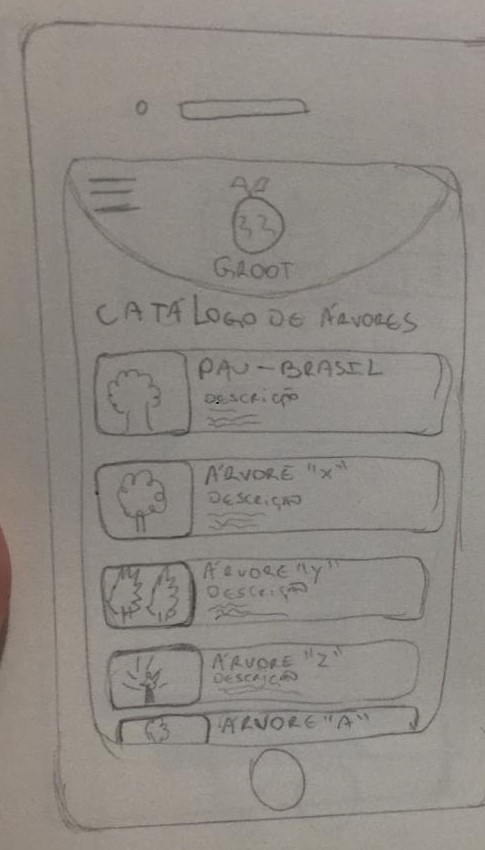 GROOT
CATÁLOGO DE ÁRVORES
PAU-BRASIL
DESCRIÇÃO
ÁRVORE "X"
DESCRIÇÃO
ÁRVORE "Y"
DESCRIÇÃO
ÁRVORE "Z"
DESCRIÇÃO
ÁRVORE "A"